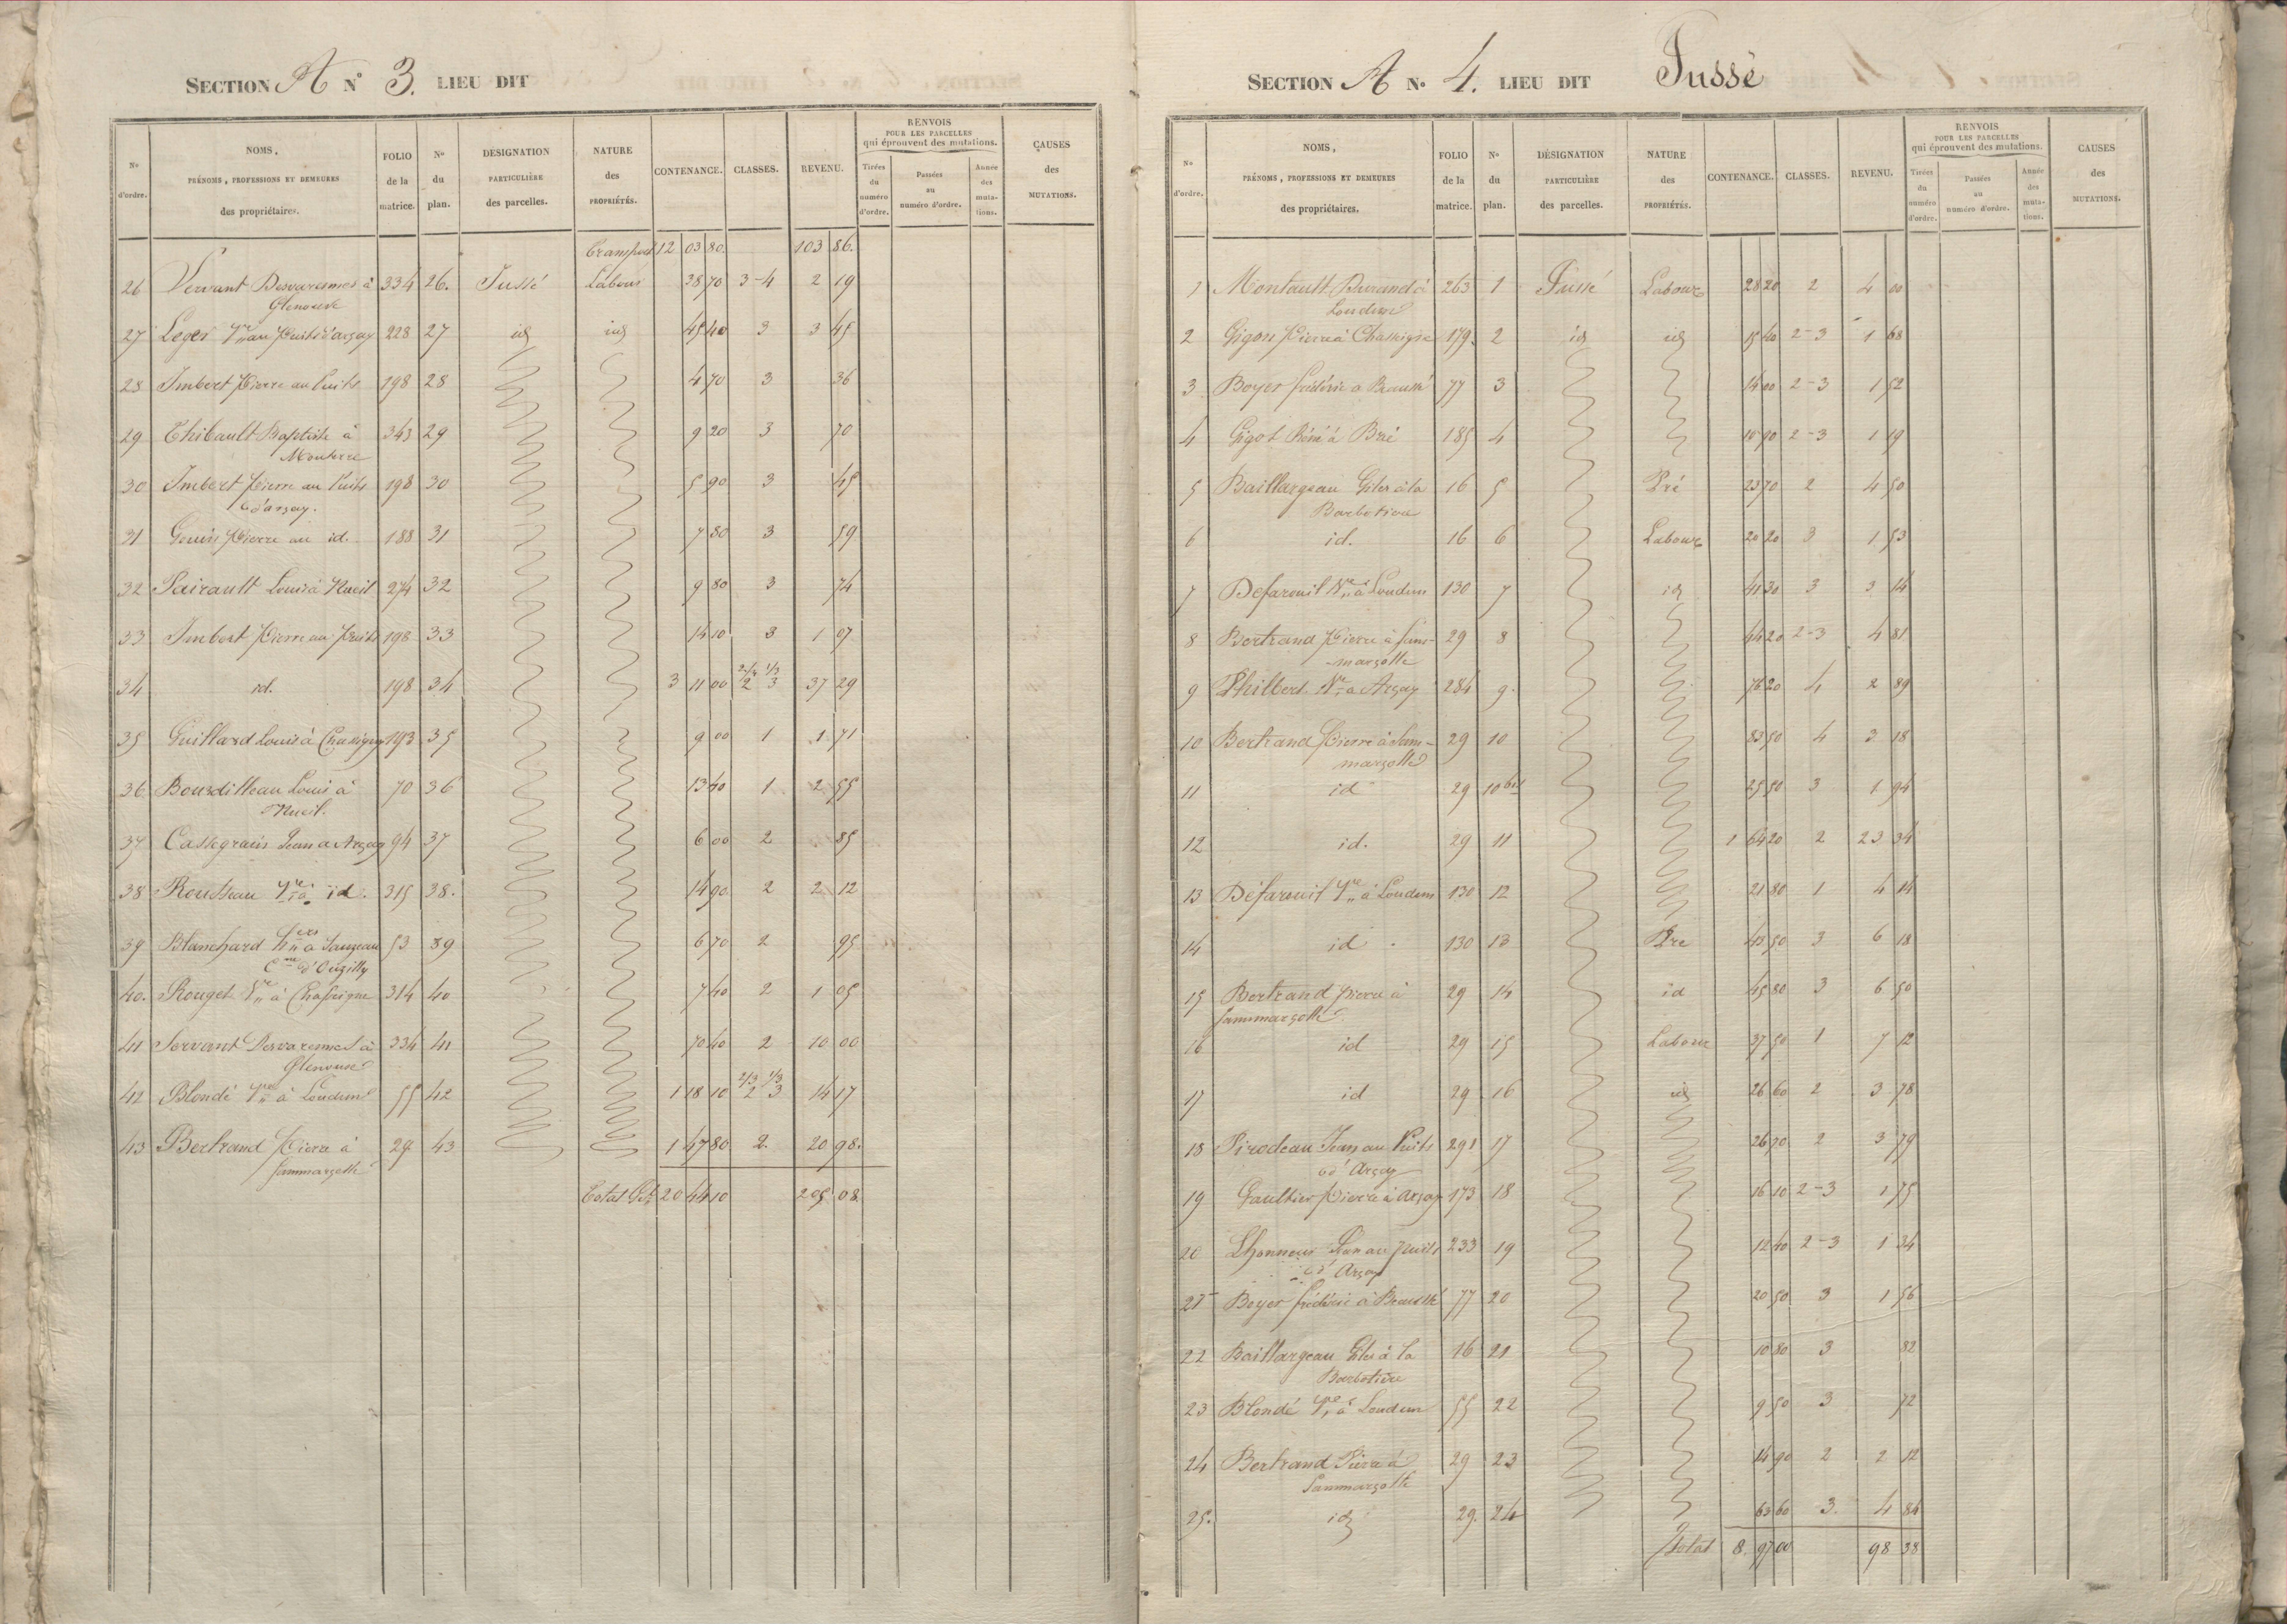 SECTION A N° 3. LIEU DIT
N° d'ordre. NOMS, PRÉNOMS, PROFESSIONS ET DEMEURES des propriétaires. FOLIO de la matrice. N° du plan. DÉSIGNATION PARTICULIÈRE des parcelles. NATURE des PROPRIÉTÉS. CONTENANCE. CLASSES. REVENU. RENVOIS POUR LES PARCELLES qui éprouvent des mutations. Tirées du numéro d'ordre. Passées au numéro d'ordre. Année des mutations. CAUSES des MUTATIONS.
Transport 12 03 80 103 86.
26 Servant Desvarennes à 334 26. Jussé Labour 38 70 3-4 2 19
Glenouse
27 Leger Vve au Puits d'arçay 228 27 id id 45 40 3 3 45
28 Imbert Pierre au Puits 198 28 4 70 3 36
29 Thibault Baptiste à 343 29 9 20 3 70
Mouterre
30 Imbert Pierre au Puits 198 30 5 90 3 45
d'arçay.
31 Pierre au id. 188 31 7 80 3 59
32 Pairault Louis à Nueil 274 32 9 80 3 74
33 Imbert Pierre au Puits 198 33 14 10 3 1 07
34 id. 198 34 3 11 00 2/3 2 1/3 3 37 29
35 Guillard Louis à Chassigny 193 35 9 00 1 1 71
36 Bourdilleau Louis à 70 36 13 40 1 2 55
Nueil.
37 Cassegrain Jean à Arçay 94 37 6 00 2 85
38 Rousseau Vve à id. 315 38. 14 90 2 2 12
39 Blanchard hers à Sauzeau 53 39 6 70 2 95
Cne d'Ouzilly
40. Rouget Vve à Chassigne 314 40 7 40 2 1 05
41 Servant Desvarennes à 334 41 70 40 2 10 00
Glenouse
42 Blondé Vve à Loudun 55 42 1 18 10 2/3 2 1/3 3 14 17
43 Bertrand Pierre à 29 43 1 47 80 2. 20 98.
Sammarçolle
Total 20 44 10 205 08
SECTION A N° 4. LIEU DIT Jussé
N° d'ordre. NOMS, PRÉNOMS, PROFESSIONS ET DEMEURES des propriétaires. FOLIO de la matrice. N° du plan. DÉSIGNATION PARTICULIÈRE des parcelles. NATURE des PROPRIÉTÉS. CONTENANCE. CLASSES. REVENU. RENVOIS POUR LES PARCELLES qui éprouvent des mutations. Tirées du numéro d'ordre. Passées au numéro d'ordre. Année des mutations. CAUSES des MUTATIONS.
1 Montault Durand à 263 1 Jussé Labour 28 20 2 4 00
Loudun
2 Gigon Pierre à Chassigne 179. 2 id id 15 40 2-3 1 68
3 Boyer frédéric à 77 3 14 00 2-3 1 52
4 Gigot René à Brié 185 4 10 90 2-3 1 19
5 Baillargeau Giles à la 16 5 Pré 23 70 2 4 50
Barbotière
6 id. 16 6 Labour 20 20 3 1 53
7 Defarouil Vve à Loudun 130 7 id 41 30 3 3 14
8 Bertrand Pierre à Sam- 29 8 44 20 2-3 4 81
-marçolle
9 Philbert Vve à Arçay 284 9. 76 20 4 2 89
10 Bertrand Pierre à Sam- 29 10 83 50 4 3 18
marçolle
11 id 29 10 bis 25 50 3 1 94
12 id. 29 11 1 64 20 2 23 34
13 Défarouil Vve à Loudun 130 12 21 80 1 4 14
14 id. 130 13 Pre 43 50 3 6 18
15 Bertrand Pierre à 29 14 id 45 80 3 6 50
Sammarçolle
16 id 29 15 Labour 37 50 1 7 12
17 id 29 16 id 26 60 2 3 78
18 Pirodeau Jean au Puits 291 17 26 70 2 3 79
d'Arçay
19 Gaultier Pierre à Arçay 173 18 16 10 2-3 1 75
20 Lhonneur Jean au Puits 233 19 12 40 2-3 1 34
d'Arçay
21 Boyer frédéric à 77 20 20 50 3 1 56
22 Baillargeau Giles à la 16 21 10 80 3 82
Barbotière
23 Blondé Vve à Loudun 55 22 9 50 3 72
24 Bertrand Pierre à 29 23 14 90 2 2 12
Sammarçolle
25. id 29. 24 63 60 3. 4 84
Total 8. 97 00 98 38